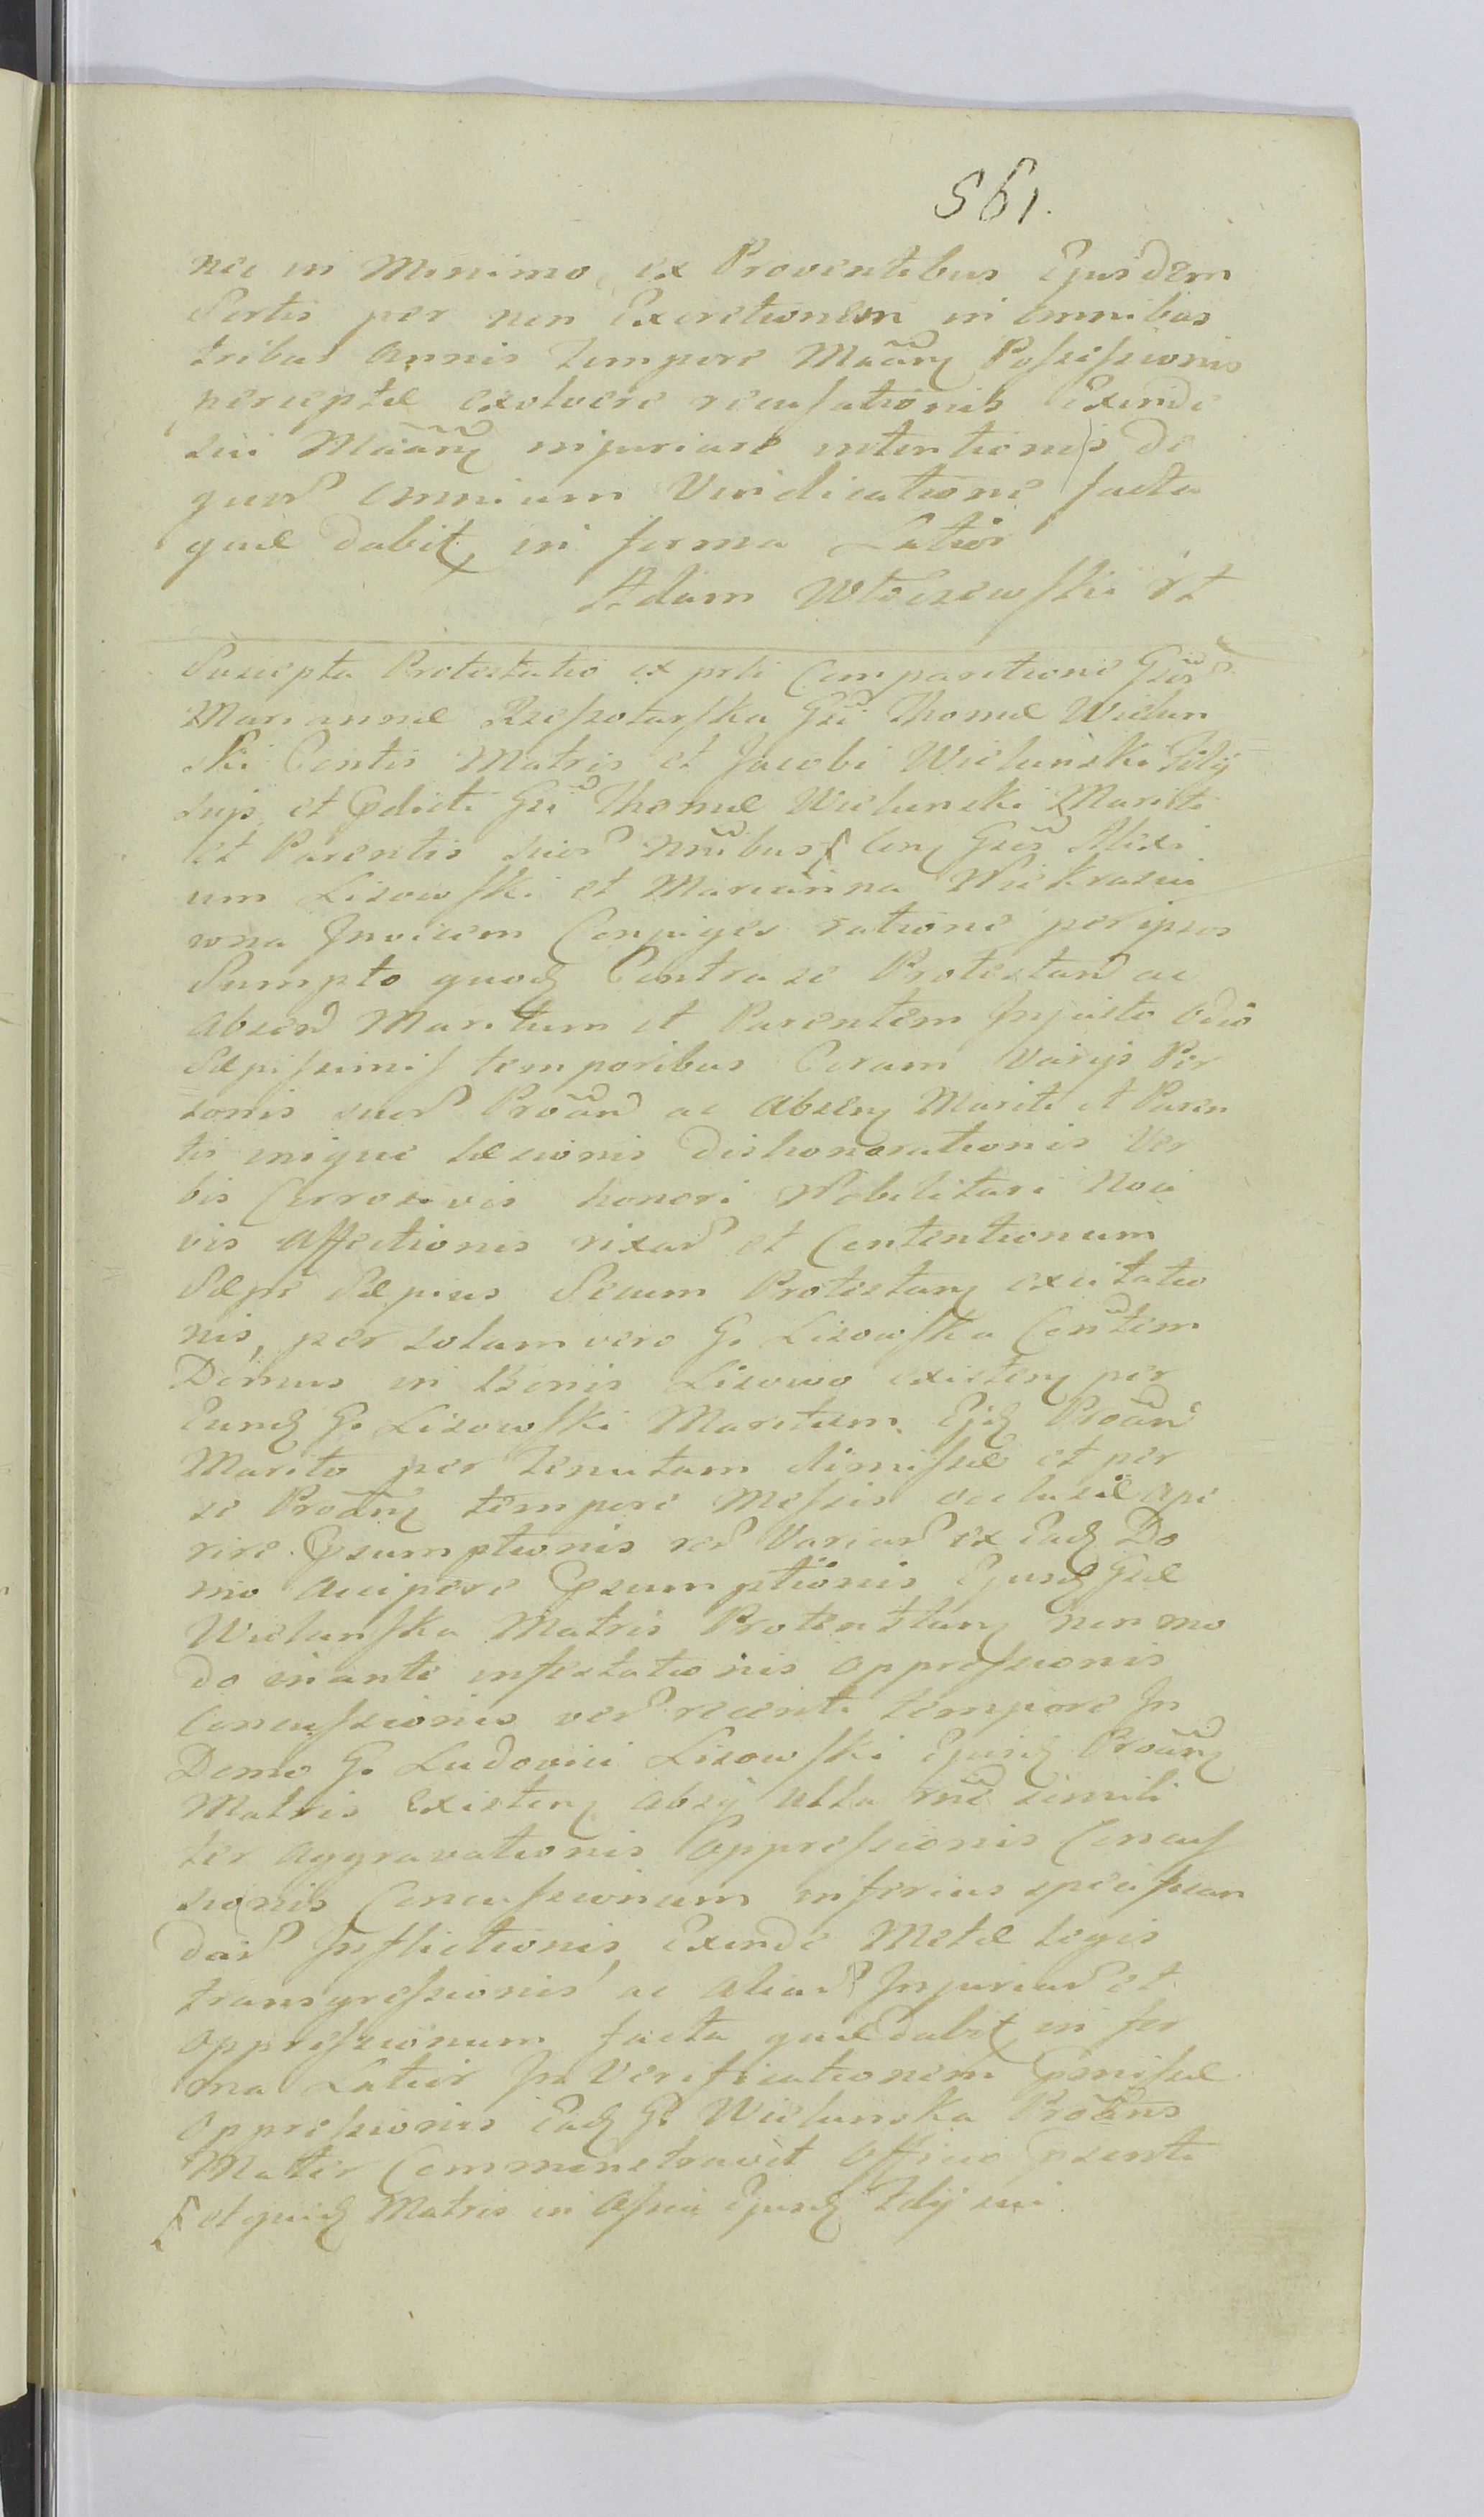 561.
nec in Minimo, ex Proventibus Ejusdem
Sortis per non Exaretionem in omnibus
tribus Annis tempore Possessionis
perceptæ exolvere recusationis Exinde
sui injuriare intentionis de
quor omnium Vindicatione facta
quæ dabit, in forma Latior
Adam
Suscepta Protestatio ex prsti Comparitione Gsor
Mariannæ Gsi Thomæ Wielun
ski Contis Matris et Jacobi Wielunski Filij
sup et Gsi Thomæ Wielunski Mariti
et Parentis suor Nnibus Con Gsos Alexi
um Lisowski et Marianna
wna Invicem Conjuges ratione per ipsos
Sumpto quod Contra se Protestan ac
absen Maritum et Parentem Injusto Odio
Sæpissimis temporibus Coram Varijs Per
sonis suor Protan ac Absen Mariti et Paren
tis inique læsionis dishonorationis Ver
bis Corrosivis honori Nobilitari Noci
vis Affectionis rixar et Contentionum
Sæpe Sæpius Secum Protestan excitatio
nis, per solam vero G. Lisowska Contem
Domus in Bonis Lisowo existen per
Eund G. Lisowski Maritum Ejd Protan
Marito per Tenutam dimissæ et per
se Protan tempore Messis occlusæ ape
rire Psumptionis rer Variar ex Ead Do
mo accipere Psumptionis Ejusd Gsæ
Wielunska Matris Protestan non mo
do inante infestationis oppressionis
Concussionis ver recenti tempore In
Domo G. Ludovici Lisowski Ejusd Protan
Matris existen absq ulla rne simili
ter aggravationis Oppressionis Concus
sionis Concussionum inferius specifican
dar Inflictionis Exinde Metæ legis
transgressionis ac aliar Injuriar et
oppressionum facta quæ dabit in for
ma Latior In Verificationem Pmissæ
oppressionis Ead G. Wielunska Protans
Mater Comminstravit Officio Psenti
et quid Matris in Ejusd Filij sui